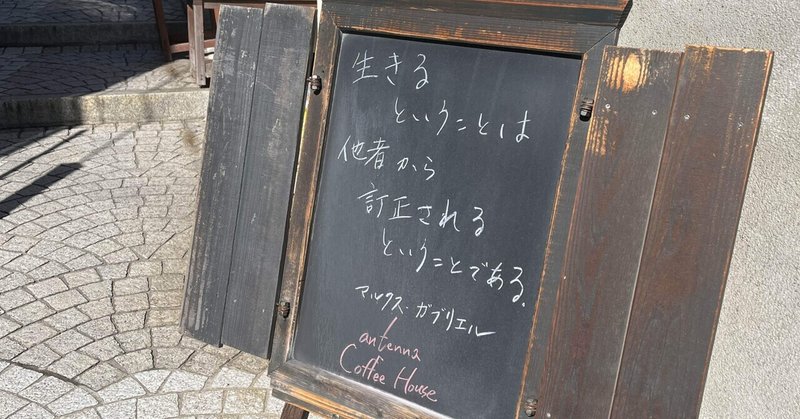 生きる
ということは
他者から
訂正される
ということである.
マルクス・ガブリエル
antenna
Coffee House